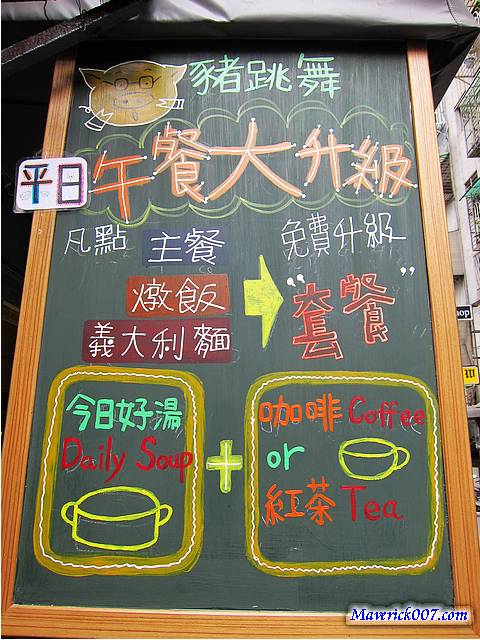 豬跳舞
平日
午餐大升級
凡點 主餐
燉飯
義大利麵
免費升級
“套餐”
今日好湯
Daily Soup
+
咖啡 Coffee
or
紅茶 Tea
hop
Maverick007.com